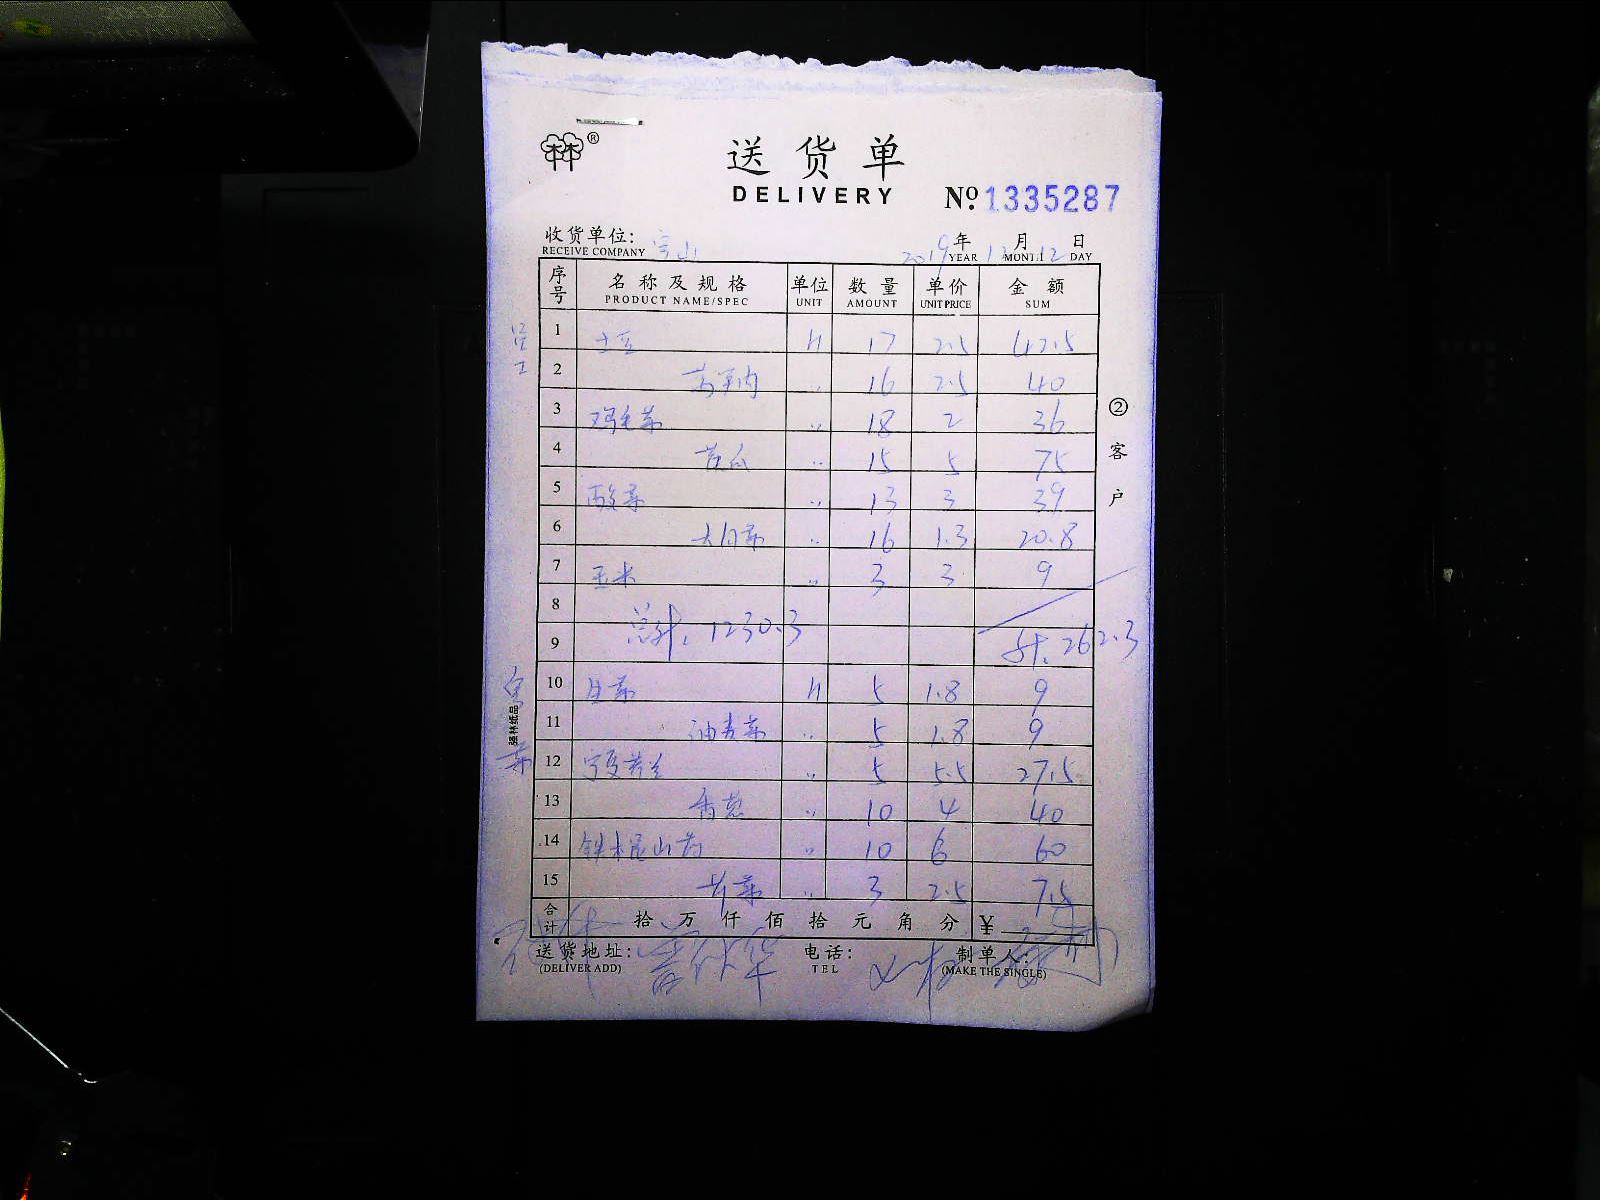 送货单
DELIVERY
Nº 1335287
收货单位: 宝山 2019年12月12日
RECEIVE COMPANY YEAR MONTH DAY
序号 名称及规格 单位 数量 单价 金额
PRODUCT NAME/SPEC UNIT AMOUNT UNIT PRICE SUM
1 土豆 斤 17 2.5 42.5
2 16 2.5 40
3 鸡毛菜 〃 18 2 36
4 黄瓜 〃 15 5 75
5 酸菜 〃 13 3 39
6 大白菜 〃 16 1.3 20.8
7 玉米 〃 3 3 9
8
总计: 1230.3
9 计: 262.3
10 生菜 斤 5 1.8 9
11 油麦菜 〃 5 1.8 9
12 5 5.5 27.5
13 香葱 〃 10 4 40
14 铁棍山药 〃 10 6 60
15 〃 3 2.5 7.5
合计 拾万仟佰拾元角分 ¥
送货地址: 电话: 制单人:
(DELIVER ADD) TEL (MAKE THE SINGLE)
②客户
强林纸品